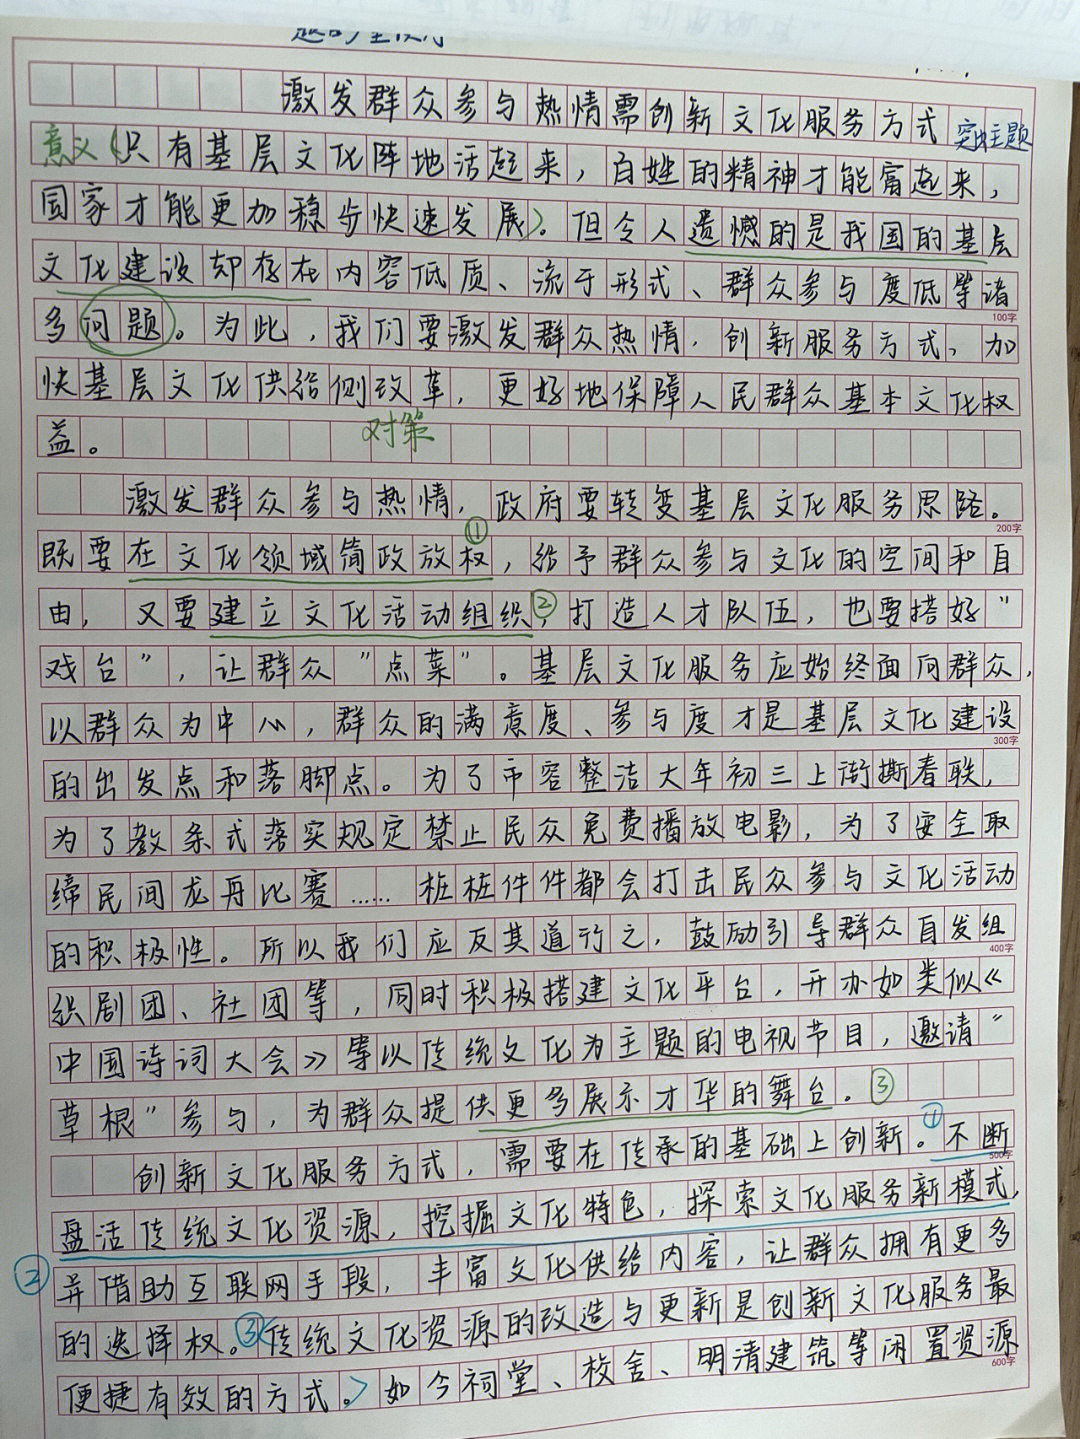 激发群众参与热情需创新文化服务方式 突出主题
意义〈只有基层文化阵地活起来，百姓的精神才能富起来，
国家才能更加稳步快速发展〉。但令人遗憾的是我国的基层
文化建设却存在内容低质、流于形式、群众参与度低等诸
100字
多问题。为此，我们要激发群众热情，创新服务方式、加
快基层文化供给侧改革，更好地保障人民群众基本文化权
益。 对策
激发群众参与热情，政府要转变基层文化服务思路。
200字
既要在文化领域简政放权①，给予群众参与文化的空间和自
由，又要建立文化活动组织②，打造人才队伍，也要搭好“
戏台”，让群众“点菜”。基层文化服务应始终面向群众，
以群众为中心，群众的满意度、参与度才是基层文化建设
300字
的出发点和落脚点。为了市容整洁大年初三上街撕春联，
为了教条式落实规定禁止民众免费播放电影，为了安全取
缔民间龙舟比赛……桩桩件件都会打击民众参与文化活动
的积极性。所以我们应反其道行之，鼓励引导群众自发组
400字
织剧团、社团等，同时积极搭建文化平台，开办如类似《
中国诗词大会》等以传统文化为主题的电视节目，邀请“
草根”参与，为群众提供更多展示才华的舞台。③
创新文化服务方式，需要在传承的基础上创新。①不断
500字
盘活传统文化资源，挖掘文化特色，探索文化服务新模式，
②并借助互联网手段，丰富文化供给内容，让群众拥有更多
的选择权。③〈传统文化资源的改造与更新是创新文化服务最
便捷有效的方式。〉如今祠堂、校舍、明清建筑等闲置资源
600字